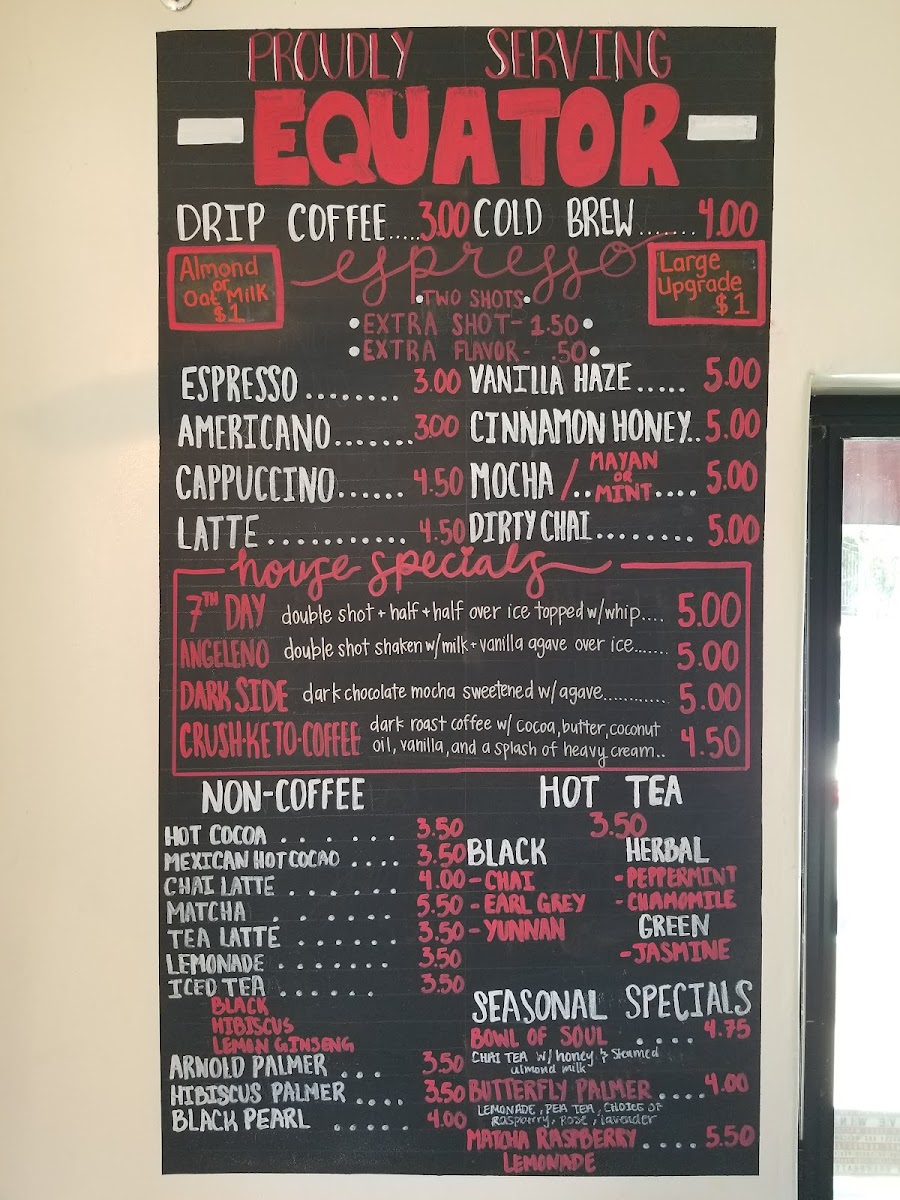 PROUDLY SERVING
EQUATOR
DRIP COFFEE.....3.00
COLD BREW.......4.00
Almond
or
Oat Milk
$1
espresso
Large
Upgrade
$1
•TWO SHOTS•
•EXTRA SHOT- 1.50•
•EXTRA FLAVOR- .50•
ESPRESSO........ 3.00
AMERICANO.......3.00
CAPPUCCINO...... 4.50
LATTE........... 4.50
VANILLA HAZE..... 5.00
CINNAMON HONEY..5.00
MOCHA /..MAYAN OR MINT.... 5.00
DIRTY CHAI........ 5.00
house specials
7TH DAY double shot + half + half over ice topped w/whip.... 5.00
ANGELENO double shot shaken w/milk + vanilla agave over ice....... 5.00
DARK SIDE dark chocolate mocha sweetened w/agave............ 5.00
CRUSH-KETO-COFFEE dark roast coffee w/ cocoa, butter, coconut
oil, vanilla, and a splash of heavy cream.. 4.50
NON-COFFEE
HOT COCOA . . . . . . 3.50
MEXICAN HOT COCAO .... 3.50
CHAI LATTE . . . . . . 4.00
MATCHA . . . . . . 5.50
TEA LATTE . . . . . . 3.50
LEMONADE . . . . . . . 3.50
ICED TEA . . . . . . 3.50
BLACK
HIBISCUS
LEMON GINSENG
ARNOLD PALMER . . . 3.50
HIBISCUS PALMER .... 3.50
BLACK PEARL . . . . . 4.00
HOT TEA
3.50
BLACK
- CHAI
- EARL GREY
- YUNNAN
HERBAL
- PEPPERMINT
- CHAMOMILE
GREEN
- JASMINE
SEASONAL SPECIALS
BOWL OF SOUL . . . . 4.75
CHAI TEA w/ honey & Steamed
almond milk
BUTTERFLY PALMER .....4.00
LEMONADE, PEA TEA, CHOICE OF
Raspberry, Rose, lavender
MATCHA RASPBERRY .... 5.50
LEMONADE